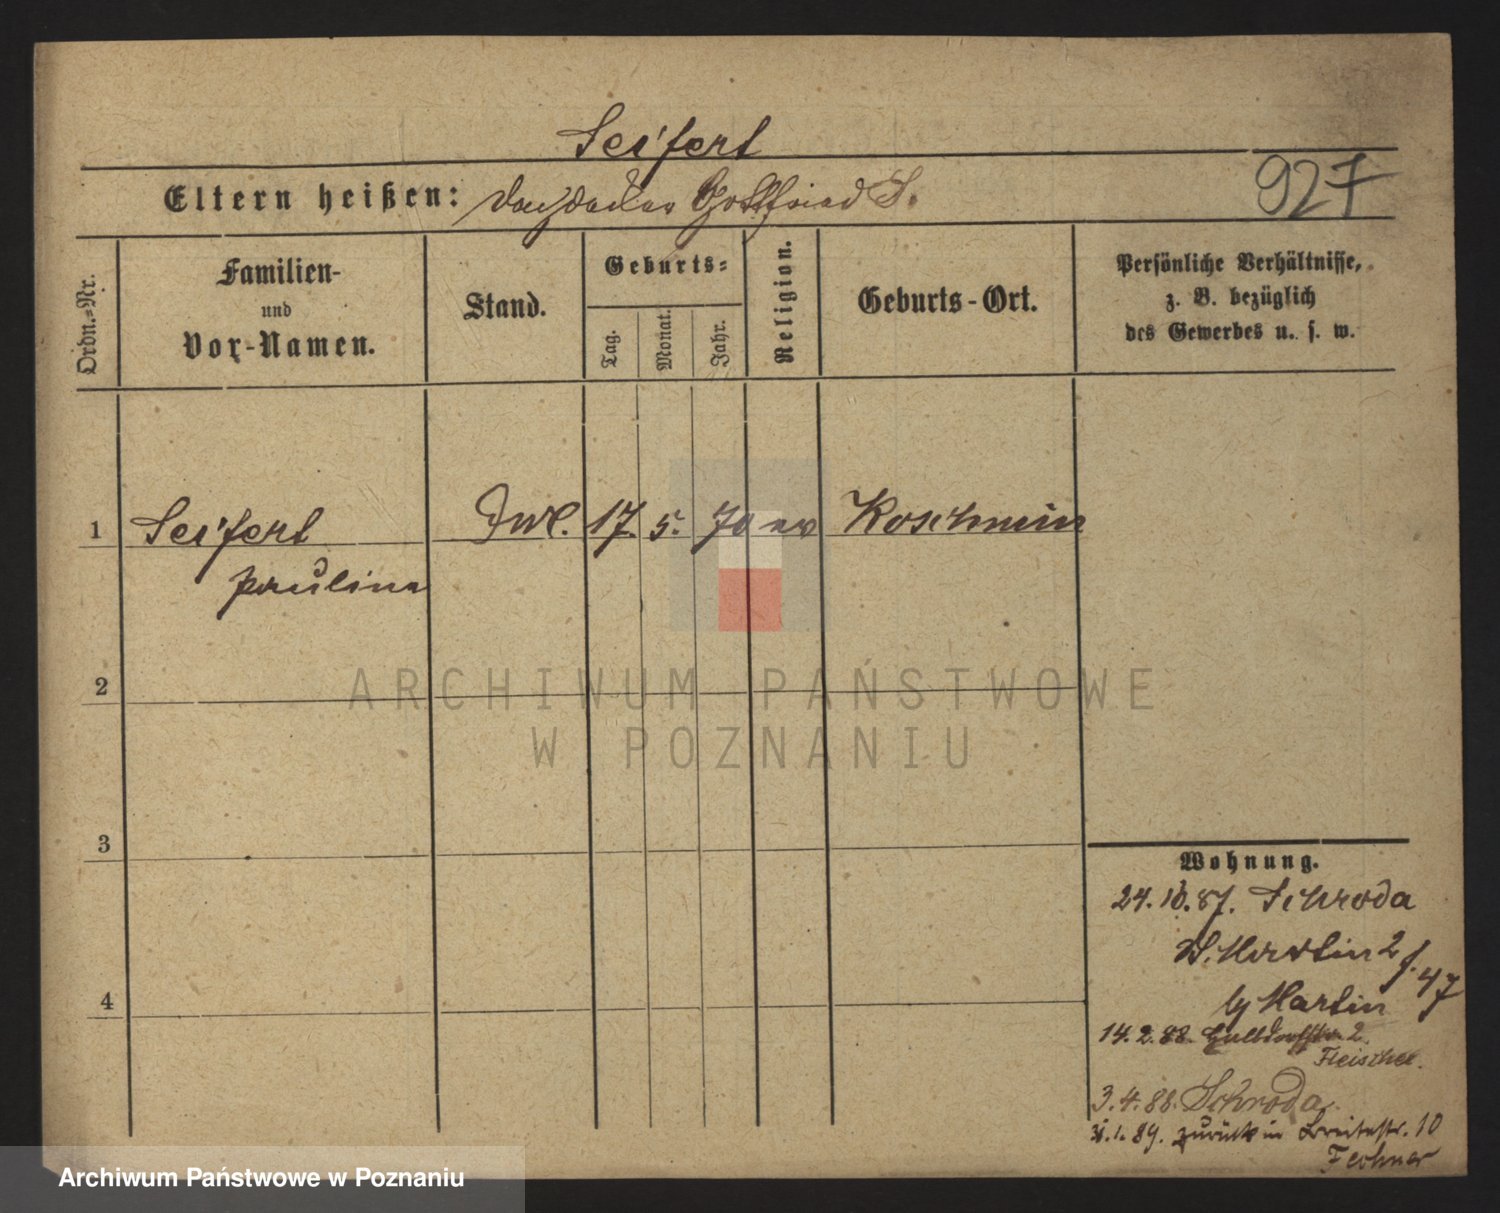 Seifert
927
Eltern heißen: Dachdecker Gottfried S.
Ordn.-Nr.
Familien-
und
Vor-Namen.
Stand.
Geburts-
Tag.
Monat.
Jahr.
Religion.
Geburts-Ort.
Persönliche Verhältnisse,
z. B. bezüglich
des Gewerbes u. s. w.
1 Seifert 17. 5. 70 ev Koschmin
Pauline
2
3
4
Wohnung.
24. 10. 87. Schroda
St. Martin 2
47
by Martin
14. 2. 88. 2
Fleischer.
3. 4. 88. Schroda
1. 89. zurück in Breitestr. 10
Fechner
ARCHIWUM PAŃSTWOWE
W POZNANIU
Archiwum Państwowe w Poznaniu